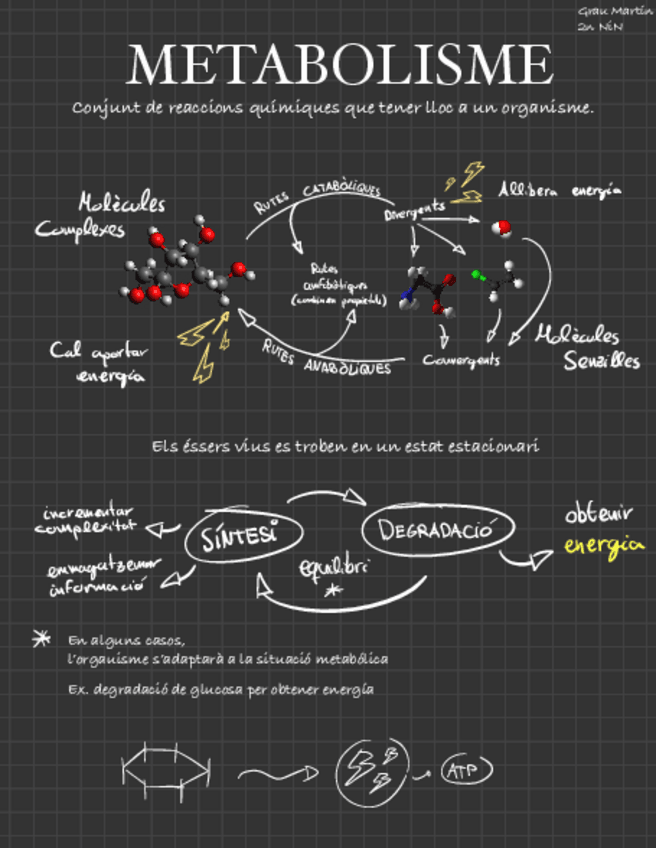 Grau Martín
2n NiN
METABOLISME
Conjunt de reaccions químiques que tener lloc a un organisme.
Molècules
Complexes
RUTES CATABÒLIQUES
Divergents
Allibera energía
Rutes
amfibòliques
(combinen propietats)
Cal aportar
energía
RUTES ANABÒLIQUES
Convergents
Molècules
Senzilles
Els éssers vius es troben en un estat estacionari
incrementar
complexitat
SÍNTESI
DEGRADACIÓ
obtenir
energia
emmagatzemar
informació
equilibri
*
* En alguns casos,
l'organisme s'adaptarà a la situació metabólica
Ex. degradació de glucosa per obtener energía
ATP